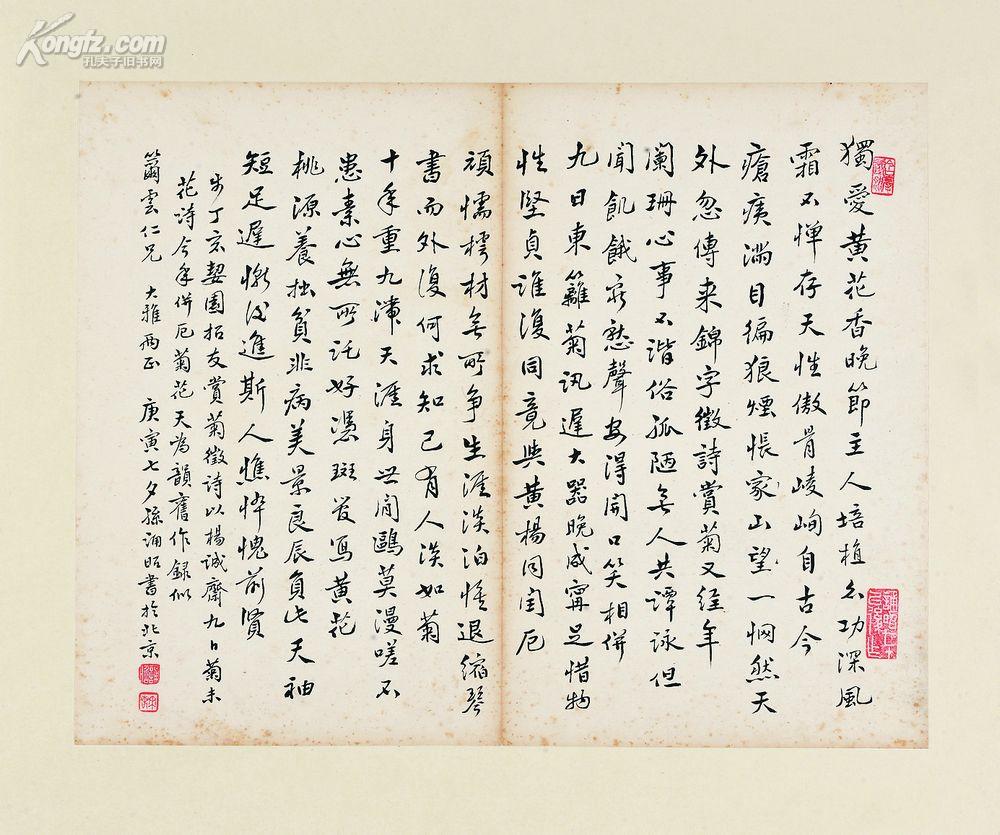 Kongfz.com
孔夫子旧书网
獨愛黄花香晚節主人培植多功深風
霜不惮存天性傲骨崚峋自古今
瘡痍滿目徧狼煙悵家山望一惘然天
外忽傳来錦字徵詩賞菊又经年
闌珊心事不谐俗孤陋無人共譚詠但
聞飢餓窮愁聲安得開口笑相併
九日東籬菊訊遲大器晚成寧足惜物
性堅貞誰復同竟與黄楊同閏厄
頑懦樗材無所争生涯淡泊惟退縮琴
書而外復何求知己有人淡如菊
十年重九滞天涯身世閒鷗莫漫嗟不
患素心無所託好憑斑管寫黄花
桃源養拙貧非病美景良辰負此天袖
短足遲慚後進斯人憔悴愧前賢
步丁亥契園招友賞菊徵詩以楊诚齋九日菊未
花詩今年併厄菊花天为韻舊作録似
籋雲仁兄 大雅两正 庚寅七夕孫誦昭書於北京